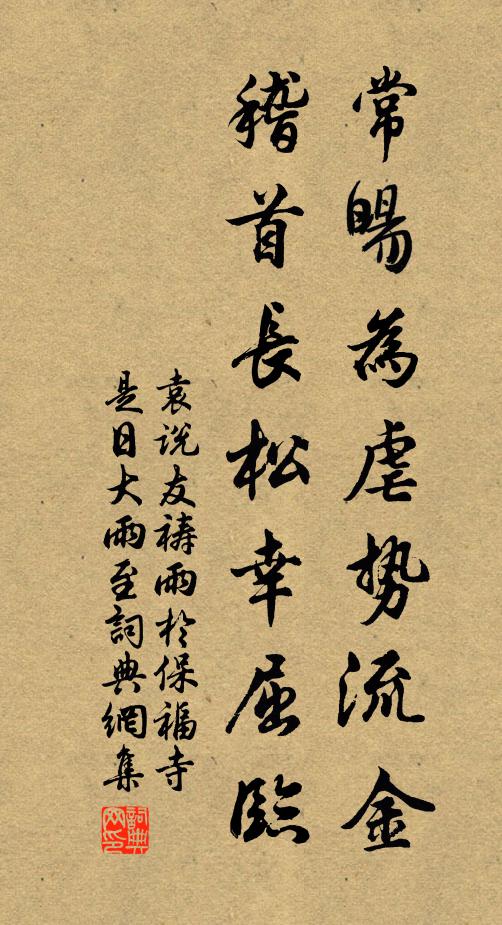 常暘為虐勢流金
稽首長松幸屈臨
袁説友禱雨於保福寺
是日大雨至詞典網集
詞典网印